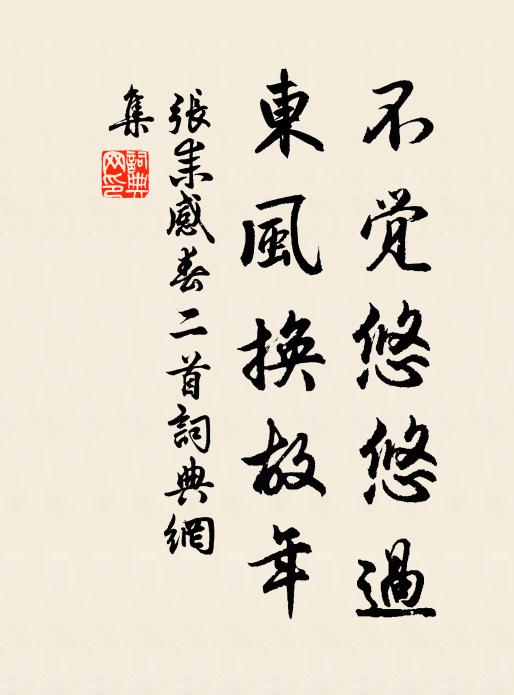 不覺悠悠過
東風換故年
張耒感春二首詞典網
集
詞典網印